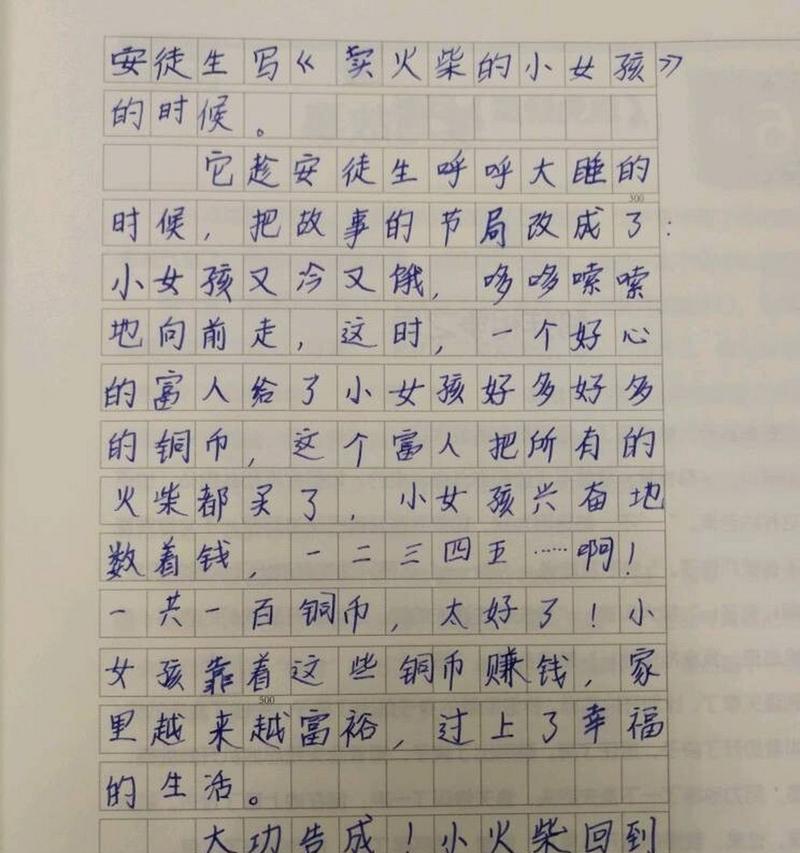 安徒生写《卖火柴的小女孩》
的时候。
它趁安徒生呼呼大睡的
300
时候，把故事的节局改成了：
小女孩又冷又饿，哆哆嗦嗦
地向前走，这时，一个好心
的富人给了小女孩好多好多
的铜币，这个富人把所有的
火柴都买了，小女孩兴奋地
数着钱，一二三四五……啊！
一共一百铜币，太好了！小
女孩靠着这些铜币赚钱，家
500
里越来越富裕，过上了幸福
的生活。
大功告成！小火柴回到